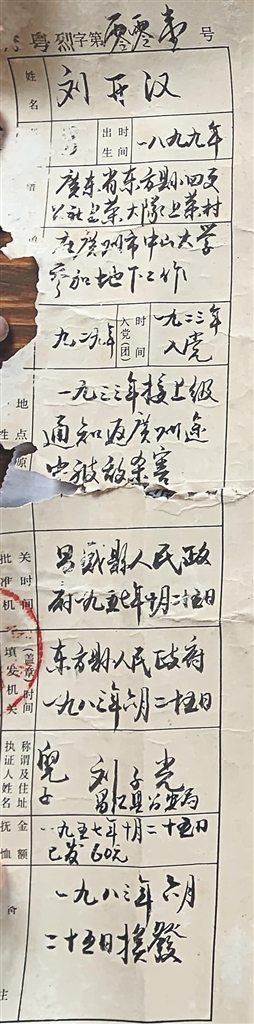 粤烈字第零零壹号
姓名
刘开汉
出生时间
一八九九年
广东省东方县四更
公社旦菜大队上菜村
在广州市中山大学
参加地下工作
九二六年
入党(团)时间
一九二三年
入党
地点
一九三三年接上级
通知返广州途
中被敌杀害
批准机关时间
昌感县人民政
府一九五七年十月二十五日
填发机关(盖章)时间
东方县人民政府
一九八三年六月二十五日
执证人姓名称谓及住址
儿子
刘子光
昌江县公安局
抚恤金额
一九五七年十月二十五日
已发60元
一九八三年六月
二十五日换发
注